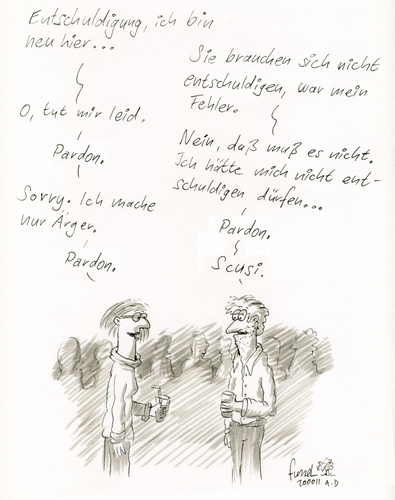 Entschuldigung, ich bin
neu hier...
Sie brauchen sich nicht
entschuldigen, war mein
Fehler.
O, tut mir leid.
Nein, daß muß es nicht.
Ich hätte mich nicht ent-
schuldigen dürfen...
Pardon.
Pardon.
Sorry. Ich mache
nur Ärger.
Scusi.
Pardon.